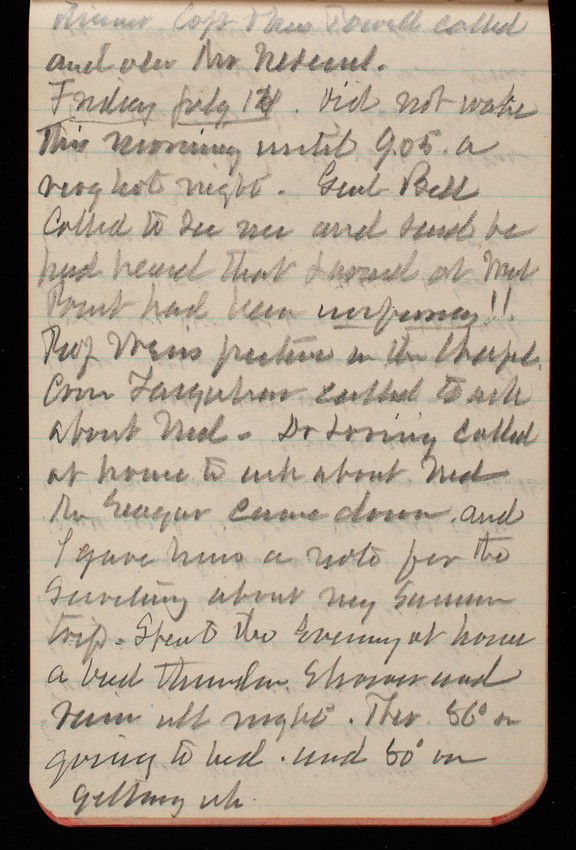 dinner Capt & Mrs Powell called
and also Mr
Friday July 14. Did not wake
this morning until 9.05. a
very hot night. Genl Bell
Called to see me and said he
had heard that Larned at West
Point had been
Prof picture in the Chapel.
Com Farquhar called to ask
about Ned. Dr Loring called
at home to ask about Ned
Mr came down and
I gave him a note for the
Secretary about my Summer
trip. Spent the Evening at home
a bad thunder Shower and
rain all night. Ther. on
going to bed. and 80° on
getting up.